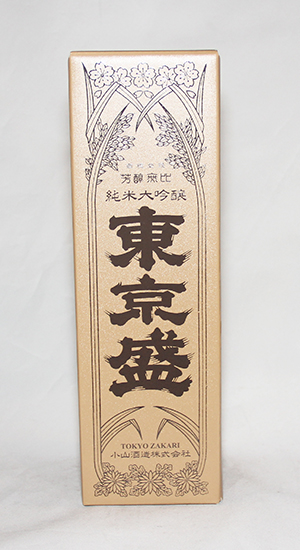 芳醇無比
純米大吟醸
東京盛
TOKYO ZAKARI
小山酒造株式会社